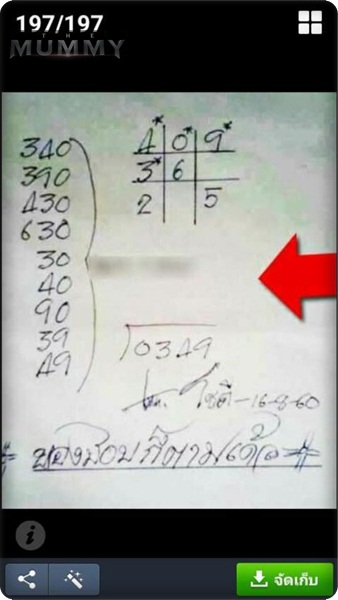 197/197
THE
MUMMY
340
390
430
630
30
40
90
39
49
4* 0* 9*
3* 6
2 5
0349
โชคดี-16-8-60
จัดเก็บ